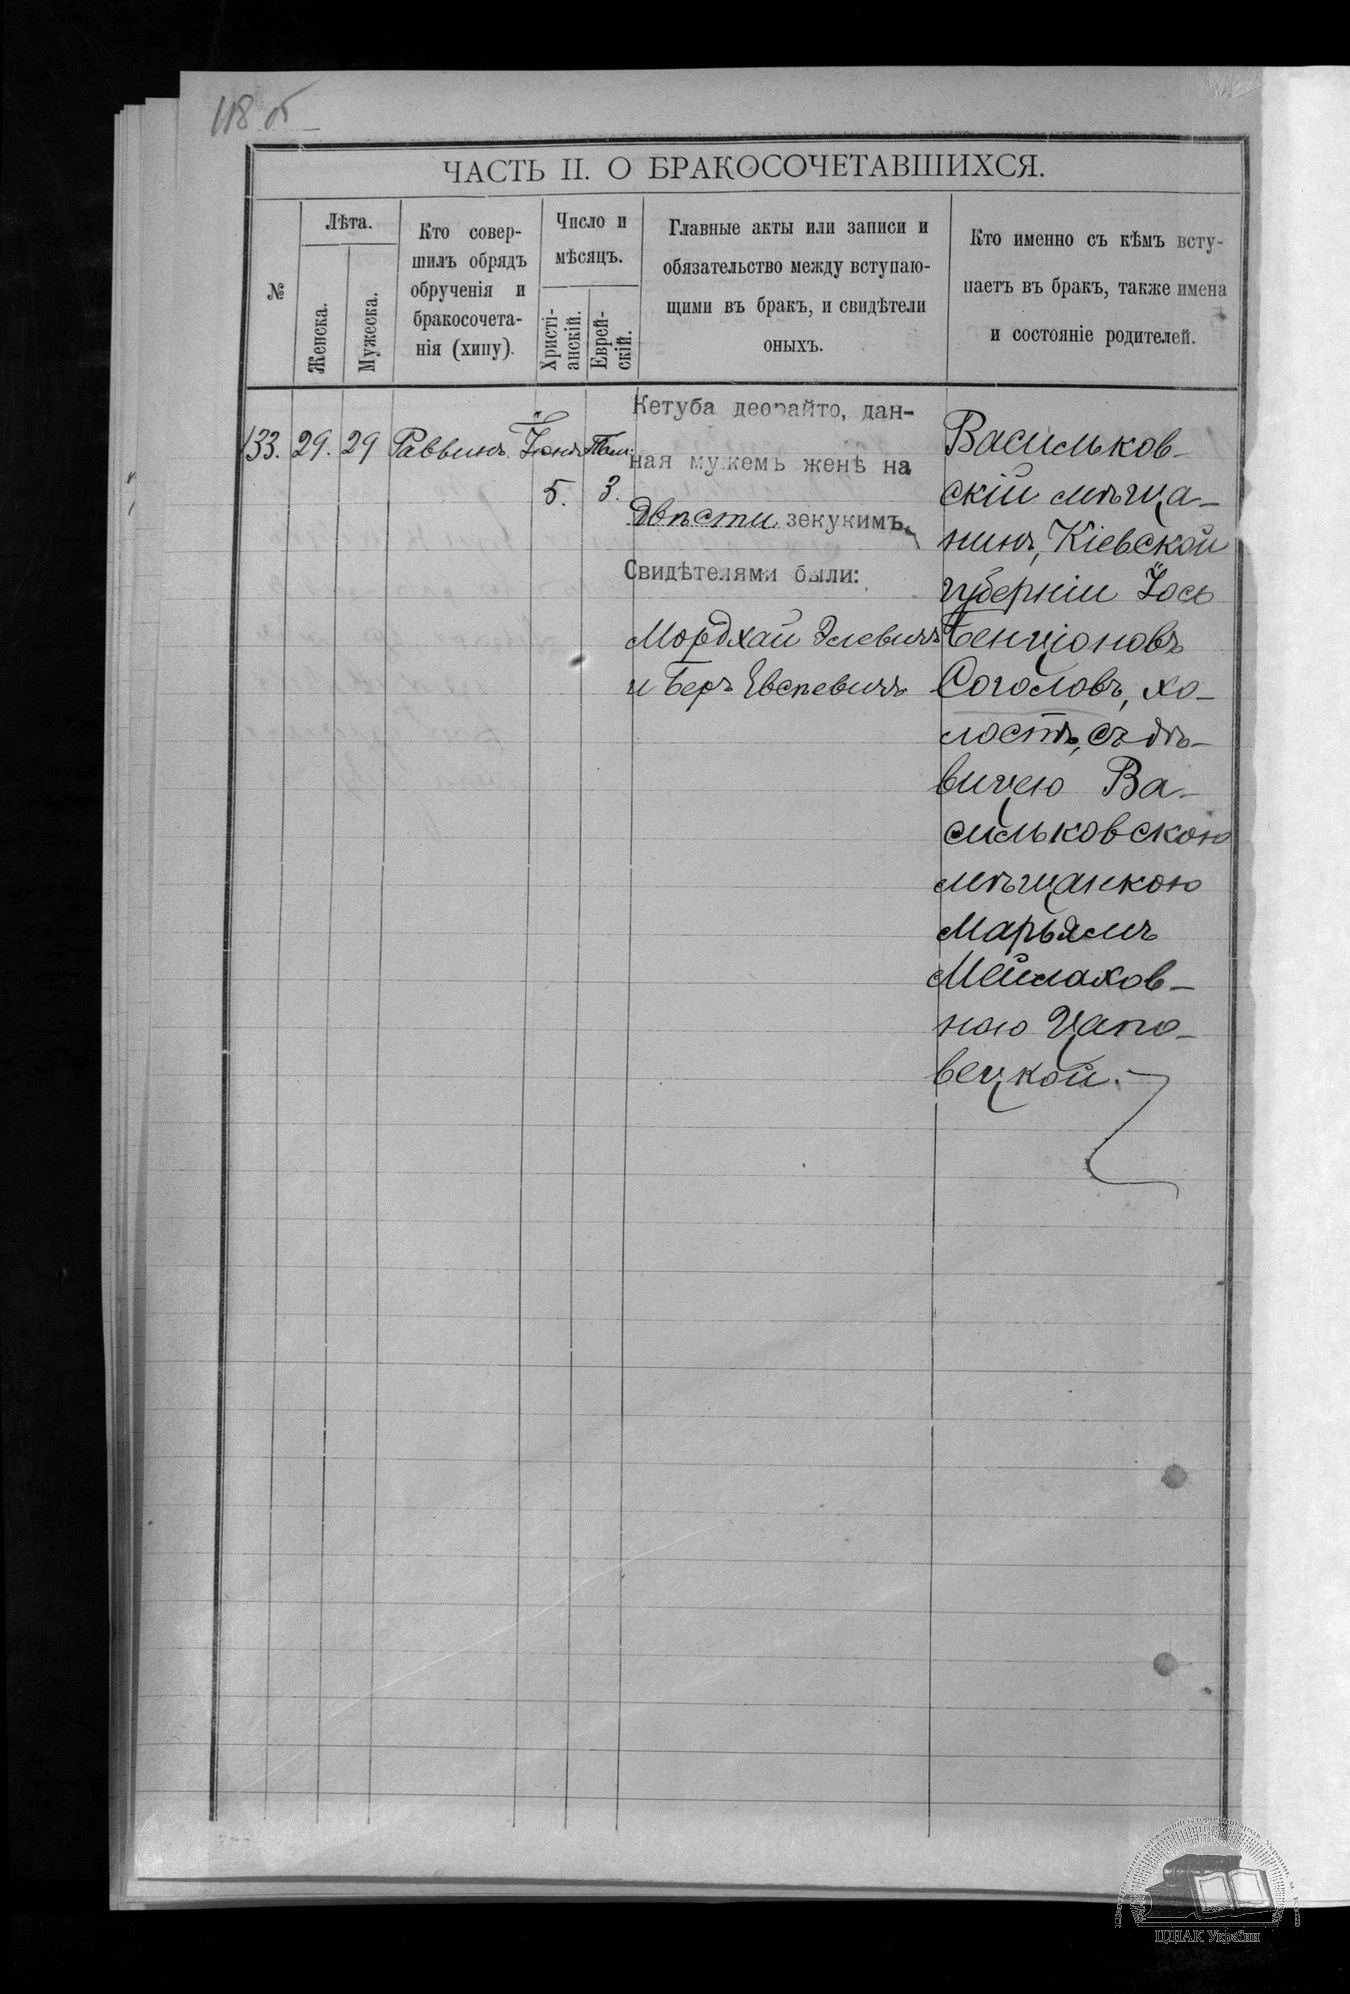 118 об
ЧАСТЬ II. О БРАКОСОЧЕТАВШИХСЯ.
№
Лѣта.
Женска.
Мужеска.
Кто совер-
шилъ обрядъ
обрученія и
бракосочета-
нія (хипу).
Число и
мѣсяцъ.
Христі-
анскій.
Еврей-
скій.
Главные акты или записи и
обязательство между вступаю-
щими въ бракъ, и свидѣтели
оныхъ.
Кто именно съ кѣмъ всту-
паетъ въ бракъ, также имена
и состояніе родителей.
133.
29.
29
Раввинъ
Іюнь
5.
Там.
3.
Кетуба деорайто, дан-
ная мужемъ женѣ на
двѣсти зекукимъ.
Свидѣтелями были:
Мордхай Элевичъ
и Беръ Евсѣевичъ
Васильков-
скій мѣща-
нинъ, Кіевской
губерніи Іось
Бенціоновъ
Соголовъ, хо-
лостъ, съ дѣ-
вицею Ва-
сильковскою
мѣщанкою
Марьямъ
Мейлахов-
ною Цапо-
вецкой.
ЦДІАК України